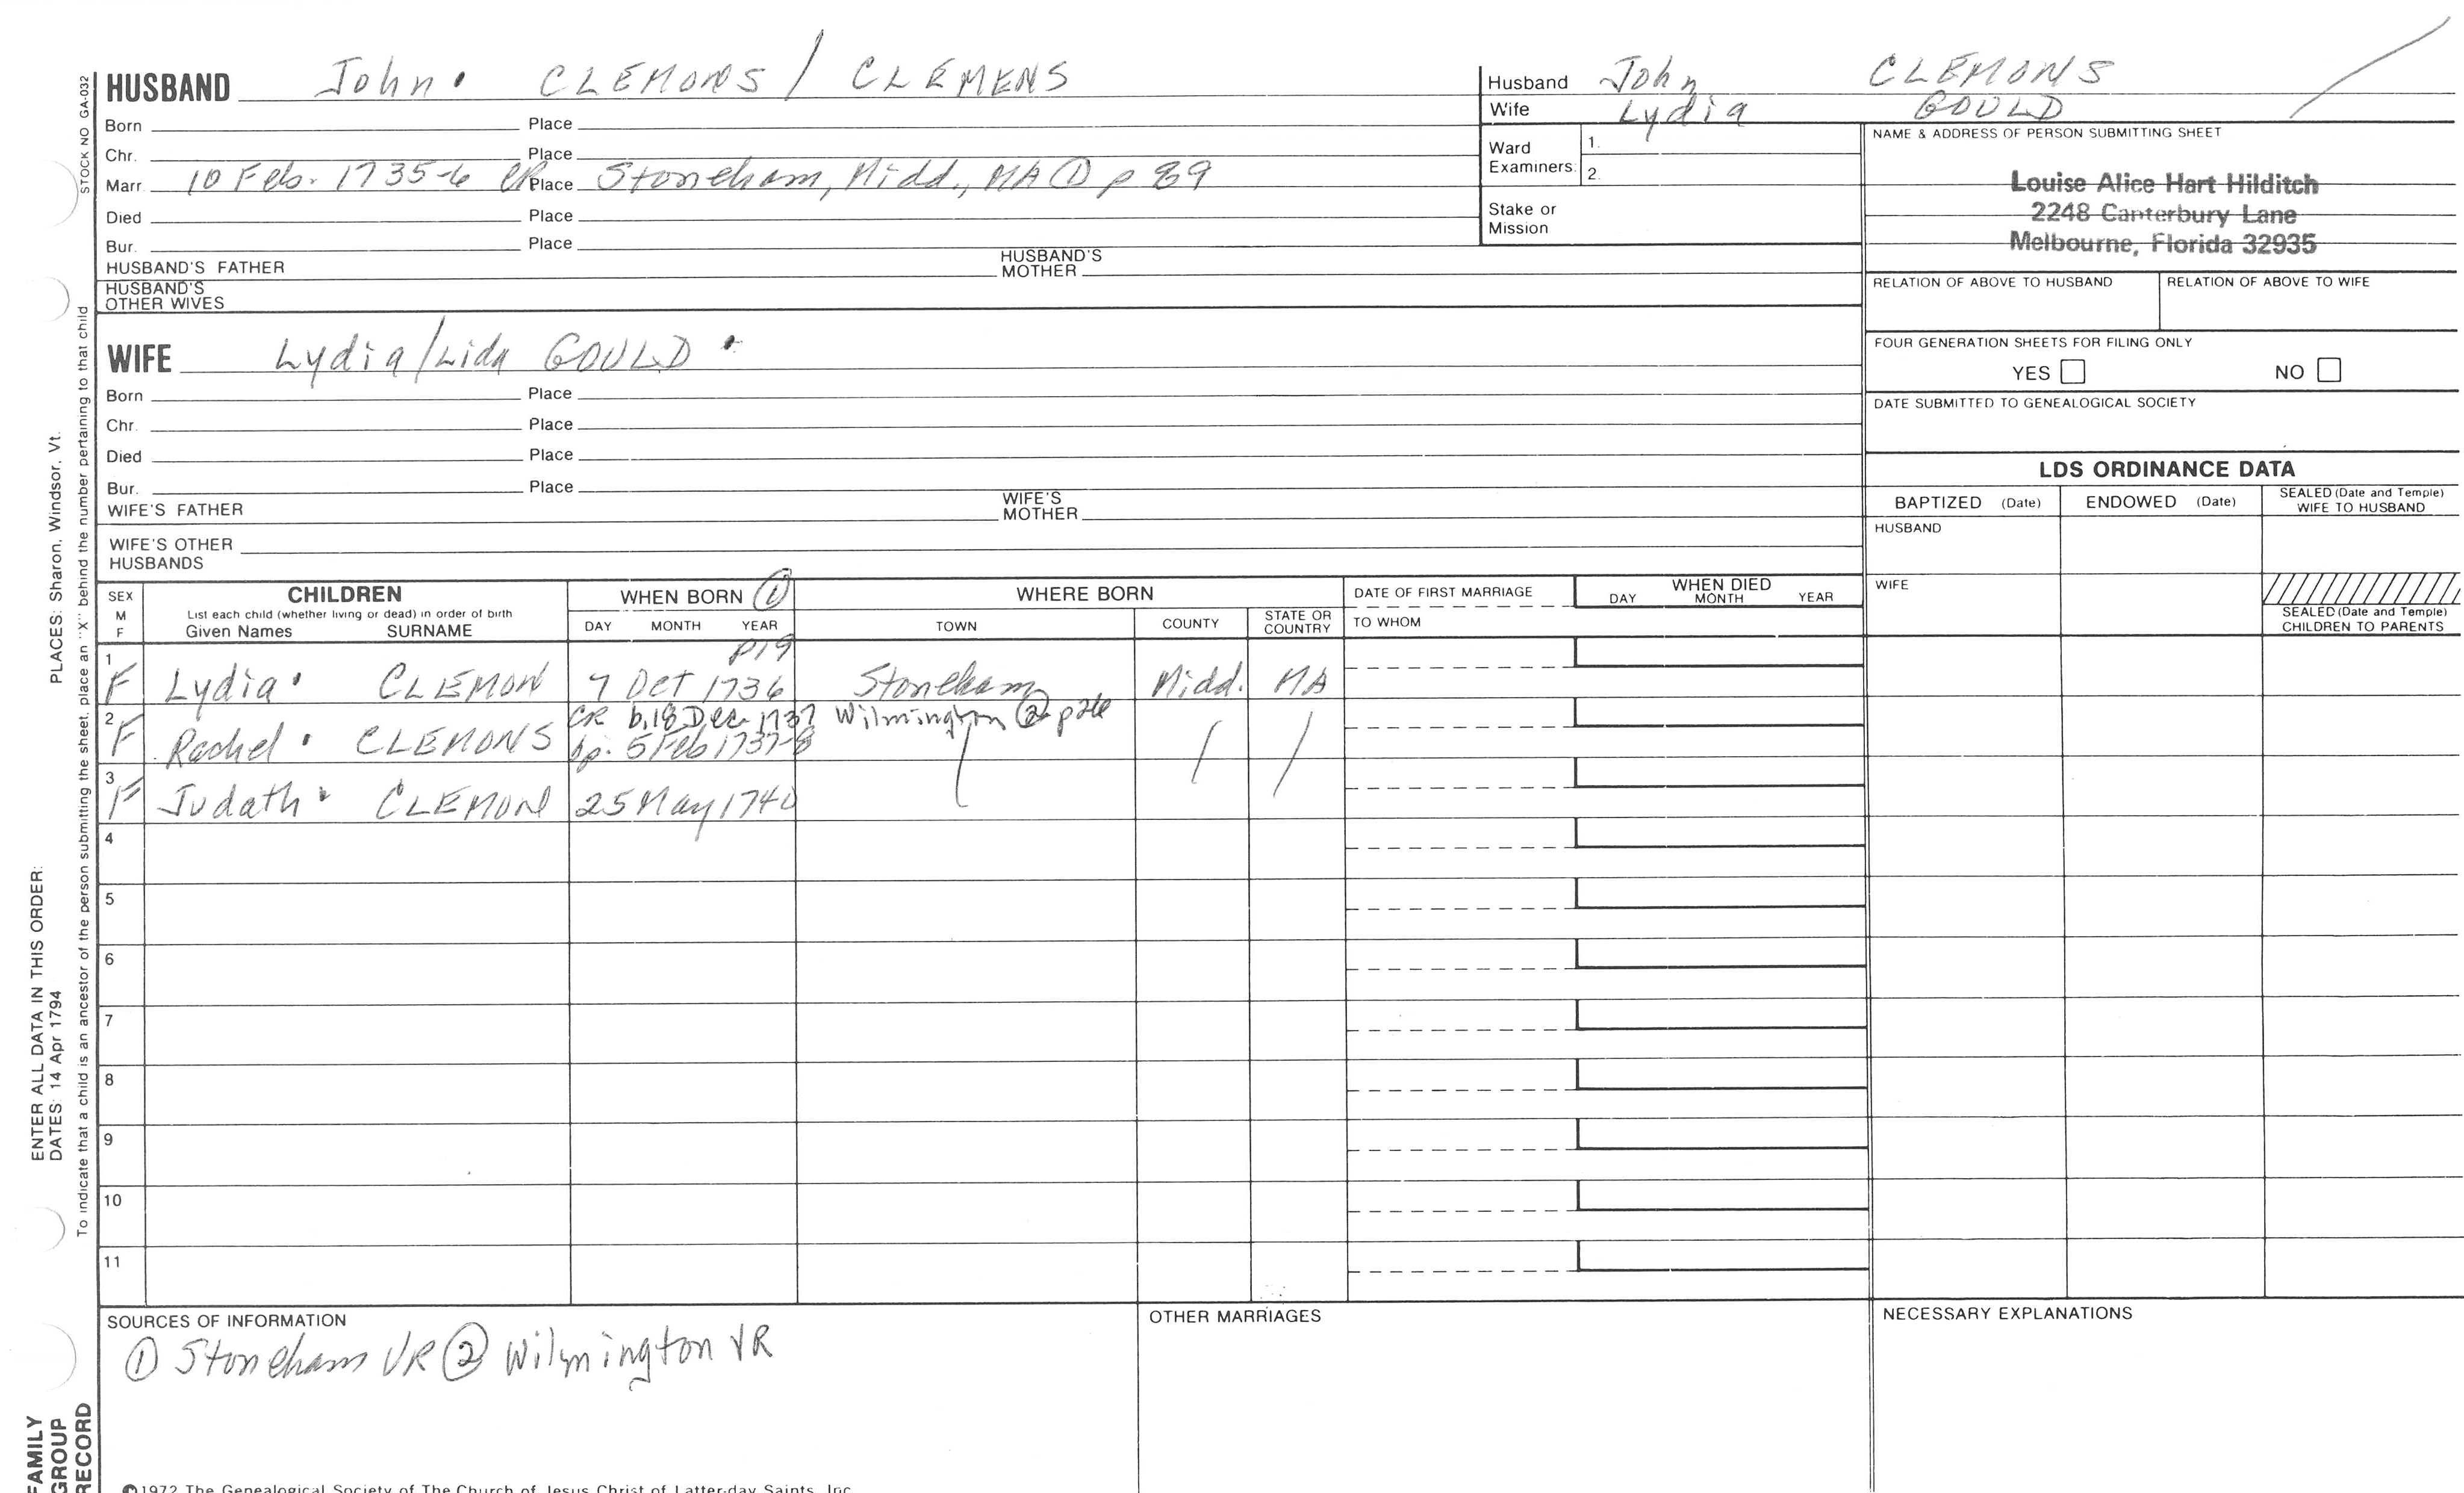 HUSBAND John. CLEMONS / CLEMENS
Born Place
Chr. Place
Marr. 10 Feb. 1735-6 CR Place Stoneham, Midd., MA ① p 89
Died Place
Bur. Place
HUSBAND'S FATHER HUSBAND'S MOTHER
HUSBAND'S OTHER WIVES
WIFE Lydia/Lida GOULD .
Born Place
Chr. Place
Died Place
Bur. Place
WIFE'S FATHER WIFE'S MOTHER
WIFE'S OTHER HUSBANDS
Husband John CLEMONS
Wife Lydia GOULD
Ward Examiners: 1.
2.
Stake or Mission
NAME & ADDRESS OF PERSON SUBMITTING SHEET
Louise Alice Hart Hilditch
2248 Canterbury Lane
Melbourne, Florida 32935
RELATION OF ABOVE TO HUSBAND RELATION OF ABOVE TO WIFE
FOUR GENERATION SHEETS FOR FILING ONLY
YES NO
DATE SUBMITTED TO GENEALOGICAL SOCIETY
LDS ORDINANCE DATA
BAPTIZED (Date) ENDOWED (Date) SEALED (Date and Temple) WIFE TO HUSBAND
HUSBAND
WIFE
SEALED (Date and Temple) CHILDREN TO PARENTS
SEX M F
CHILDREN
List each child (whether living or dead) in order of birth
Given Names SURNAME
WHEN BORN ①
DAY MONTH YEAR
WHERE BORN
TOWN COUNTY STATE OR COUNTRY
DATE OF FIRST MARRIAGE
TO WHOM
WHEN DIED
DAY MONTH YEAR
p19
1 F Lydia. CLEMON 7 Oct 1736 Stoneham Midd. MA
2 F Rachel. CLEMONS CR b. 18 Dec 1737 Wilmington ② / /
bp. 5 Feb 1737-8
3 F Judath. CLEMON 25 May 1740
4
5
6
7
8
9
10
11
SOURCES OF INFORMATION
① Stoneham VR ② Wilmington VR
OTHER MARRIAGES
NECESSARY EXPLANATIONS
©1972 The Genealogical Society of The Church of Jesus Christ of Latter-day Saints, Inc.
STOCK NO GA-032
To indicate that a child is an ancestor of the person submitting the sheet, place an "X" behind the number pertaining to that child
ENTER ALL DATA IN THIS ORDER:
DATES: 14 Apr 1794 PLACES: Sharon, Windsor, Vt.
FAMILY
GROUP
RECORD